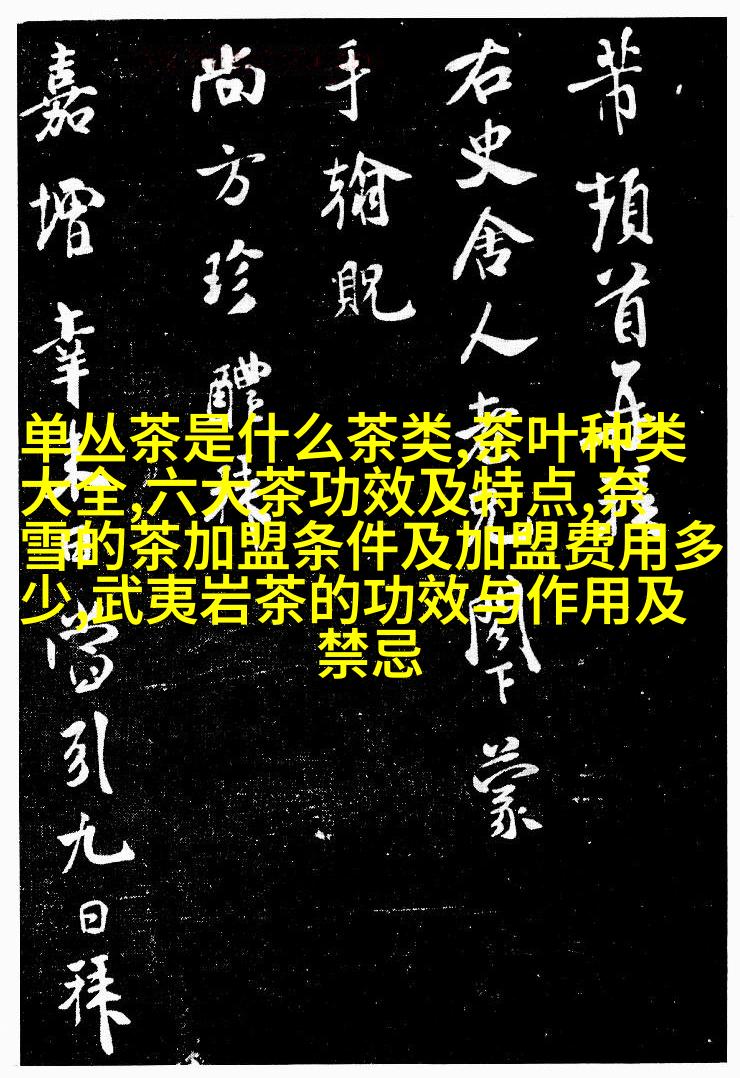 芾頓首再
右史舍人老兄閣下蒙
手翰貺
尚方珍醴
嘉增幸當引九日拜
单丛茶是什么茶类,茶叶种类
大全,六大茶功效及特点,奈
雪的茶加盟条件及加盟费用多
少,武夷岩茶的功效与作用及
禁忌